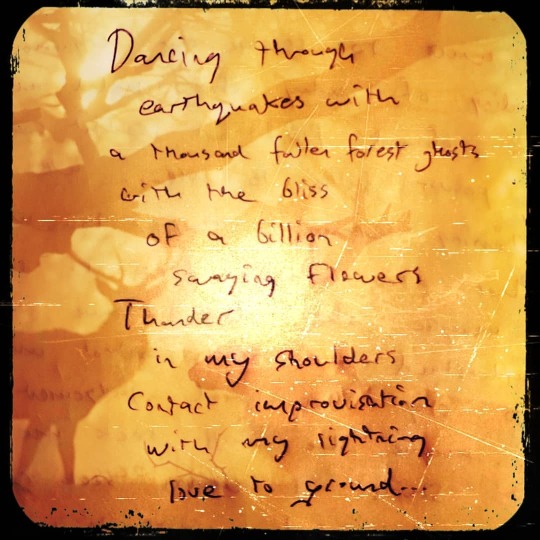 Dancing through
earthquakes with
a thousand fallen forest ghosts
with the bliss
of a billion
swaying flowers
Thunder
in my shoulders
Contact improvisation
with my lightning
love to ground...